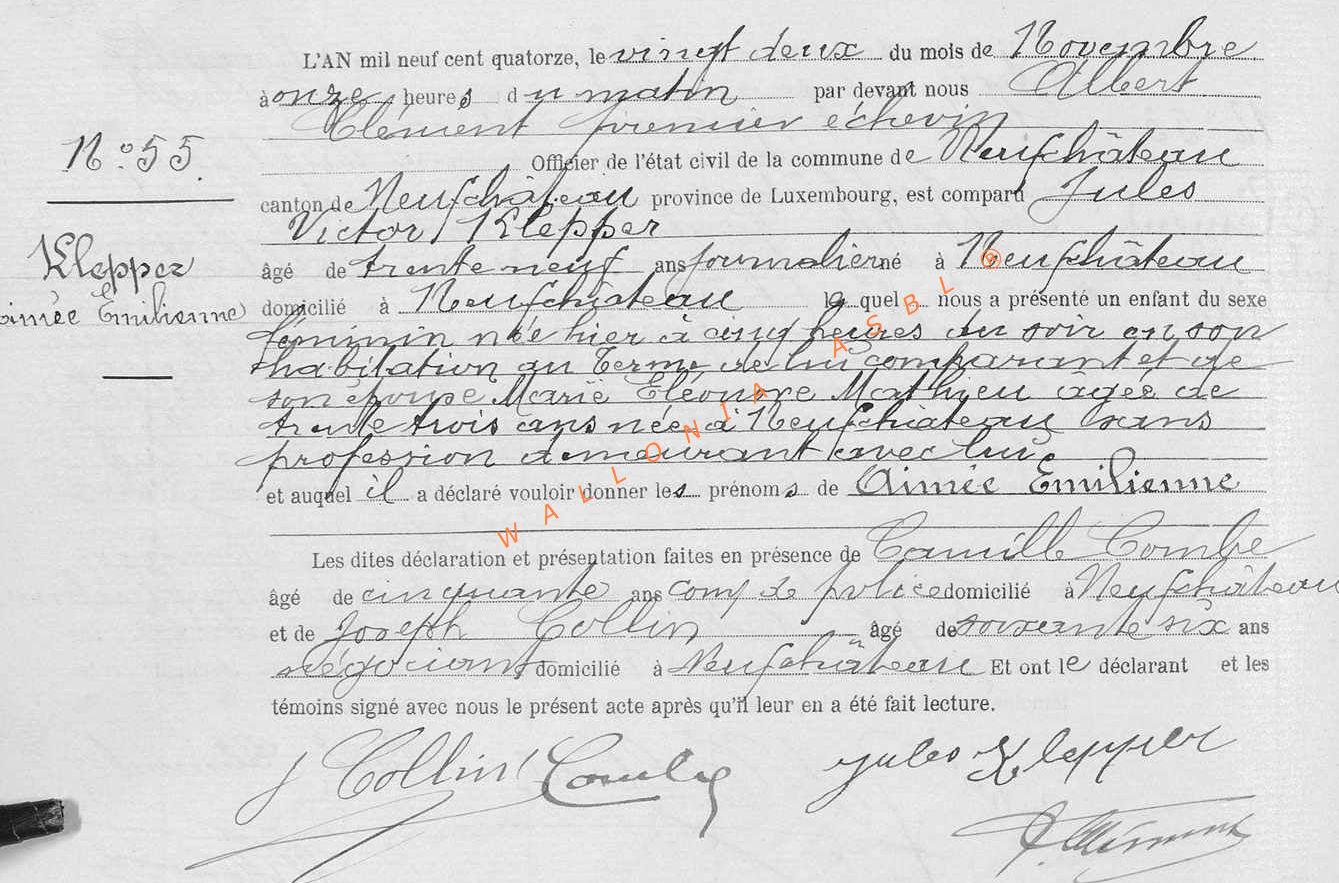 L'AN mil neuf cent quatorze, le vingt deux du mois de Novembre
à onze heures du matin par devant nous Albert
Clément premier échevin
Officier de l'état civil de la commune de Neufchâteau
N° 55.
canton de Neufchâteau province de Luxembourg, est comparu Jules
Victor Klepper
Klepper
Aimée Emilienne
âgé de trente neuf ans journalier né à Neufchâteau
domicilié à Neufchâteau lequel nous a présenté un enfant du sexe
féminin née hier à cinq heures du soir en son
habitation au Terme de lui comparant et de
son épouse Marie Eléonore Mathieu agée de
trente trois ans née à Neufchateau sans
profession demeurant avec lui
et auquel il a déclaré vouloir donner les prénoms de Aimée Emilienne
WALLONIA ASBL ©
Les dites déclaration et présentation faites en présence de Camille Combe
âgé de cinquante ans com de police domicilié à Neufchâteau
et de Joseph Collin âgé de soixante six ans
négociant domicilié à Neufchâteau Et ont le déclarant et les
témoins signé avec nous le présent acte après qu'il leur en a été fait lecture.
J Collin Combe Jules Klepper
A. Clément